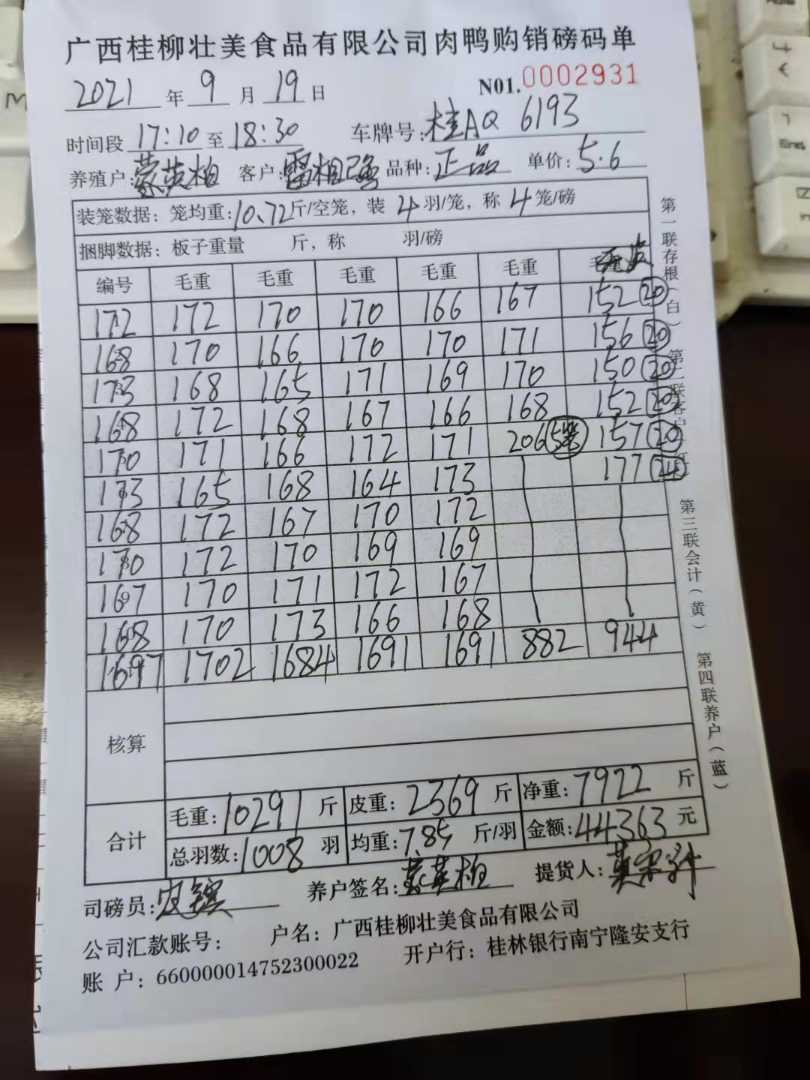 广西桂柳壮美食品有限公司肉鸭购销磅码单
2021 年 9 月 19 日 N01.0002931
时间段 17:10 至 18:30 车牌号: 桂AQ 6193
养殖户: 蒙英柏 客户: 雷相强 品种: 正品 单价: 5.6
装笼数据: 笼均重: 10.72 斤/空笼, 装 4 羽/笼, 称 4 笼/磅
捆脚数据: 板子重量 斤, 称 羽/磅
编号 毛重 毛重 毛重 毛重 毛重
172 172 170 170 166 167 152 20
168 170 166 170 170 171 156 20
173 168 165 171 169 170 150 20
168 172 168 167 166 168 152 20
170 171 166 172 171 206 5笼 157 20
173 165 168 164 173 177 24
168 172 167 170 172
170 172 170 169 169
167 170 171 172 167
168 170 173 166 168
1697 1702 1684 1691 1691 882 944
核算
合计
毛重: 10291 斤 皮重: 2369 斤 净重: 7922 斤
总羽数: 1008 羽 均重: 7.85 斤/羽 金额: 44363 元
司磅员: 养户签名: 蒙英柏 提货人:
公司汇款账号: 户名: 广西桂柳壮美食品有限公司
账 户: 660000014752300022 开户行: 桂林银行南宁隆安支行
第一联存根(白)
第二联客户
第三联会计(黄)
第四联养户(蓝)